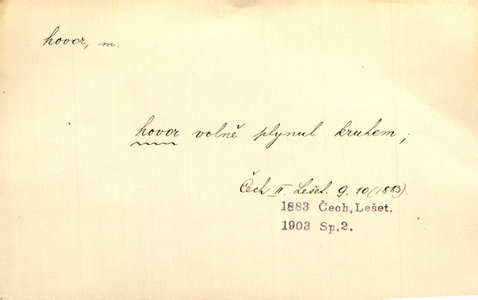 hovor, m.
hovor volně plynul kruhem;
Čech II. Lešet. 9. 10 (1883).
1883 Čech, Lešet.
1903 Sp.2.